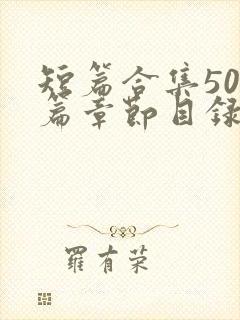 短篇合集50
篇章節目錄
羅有荣